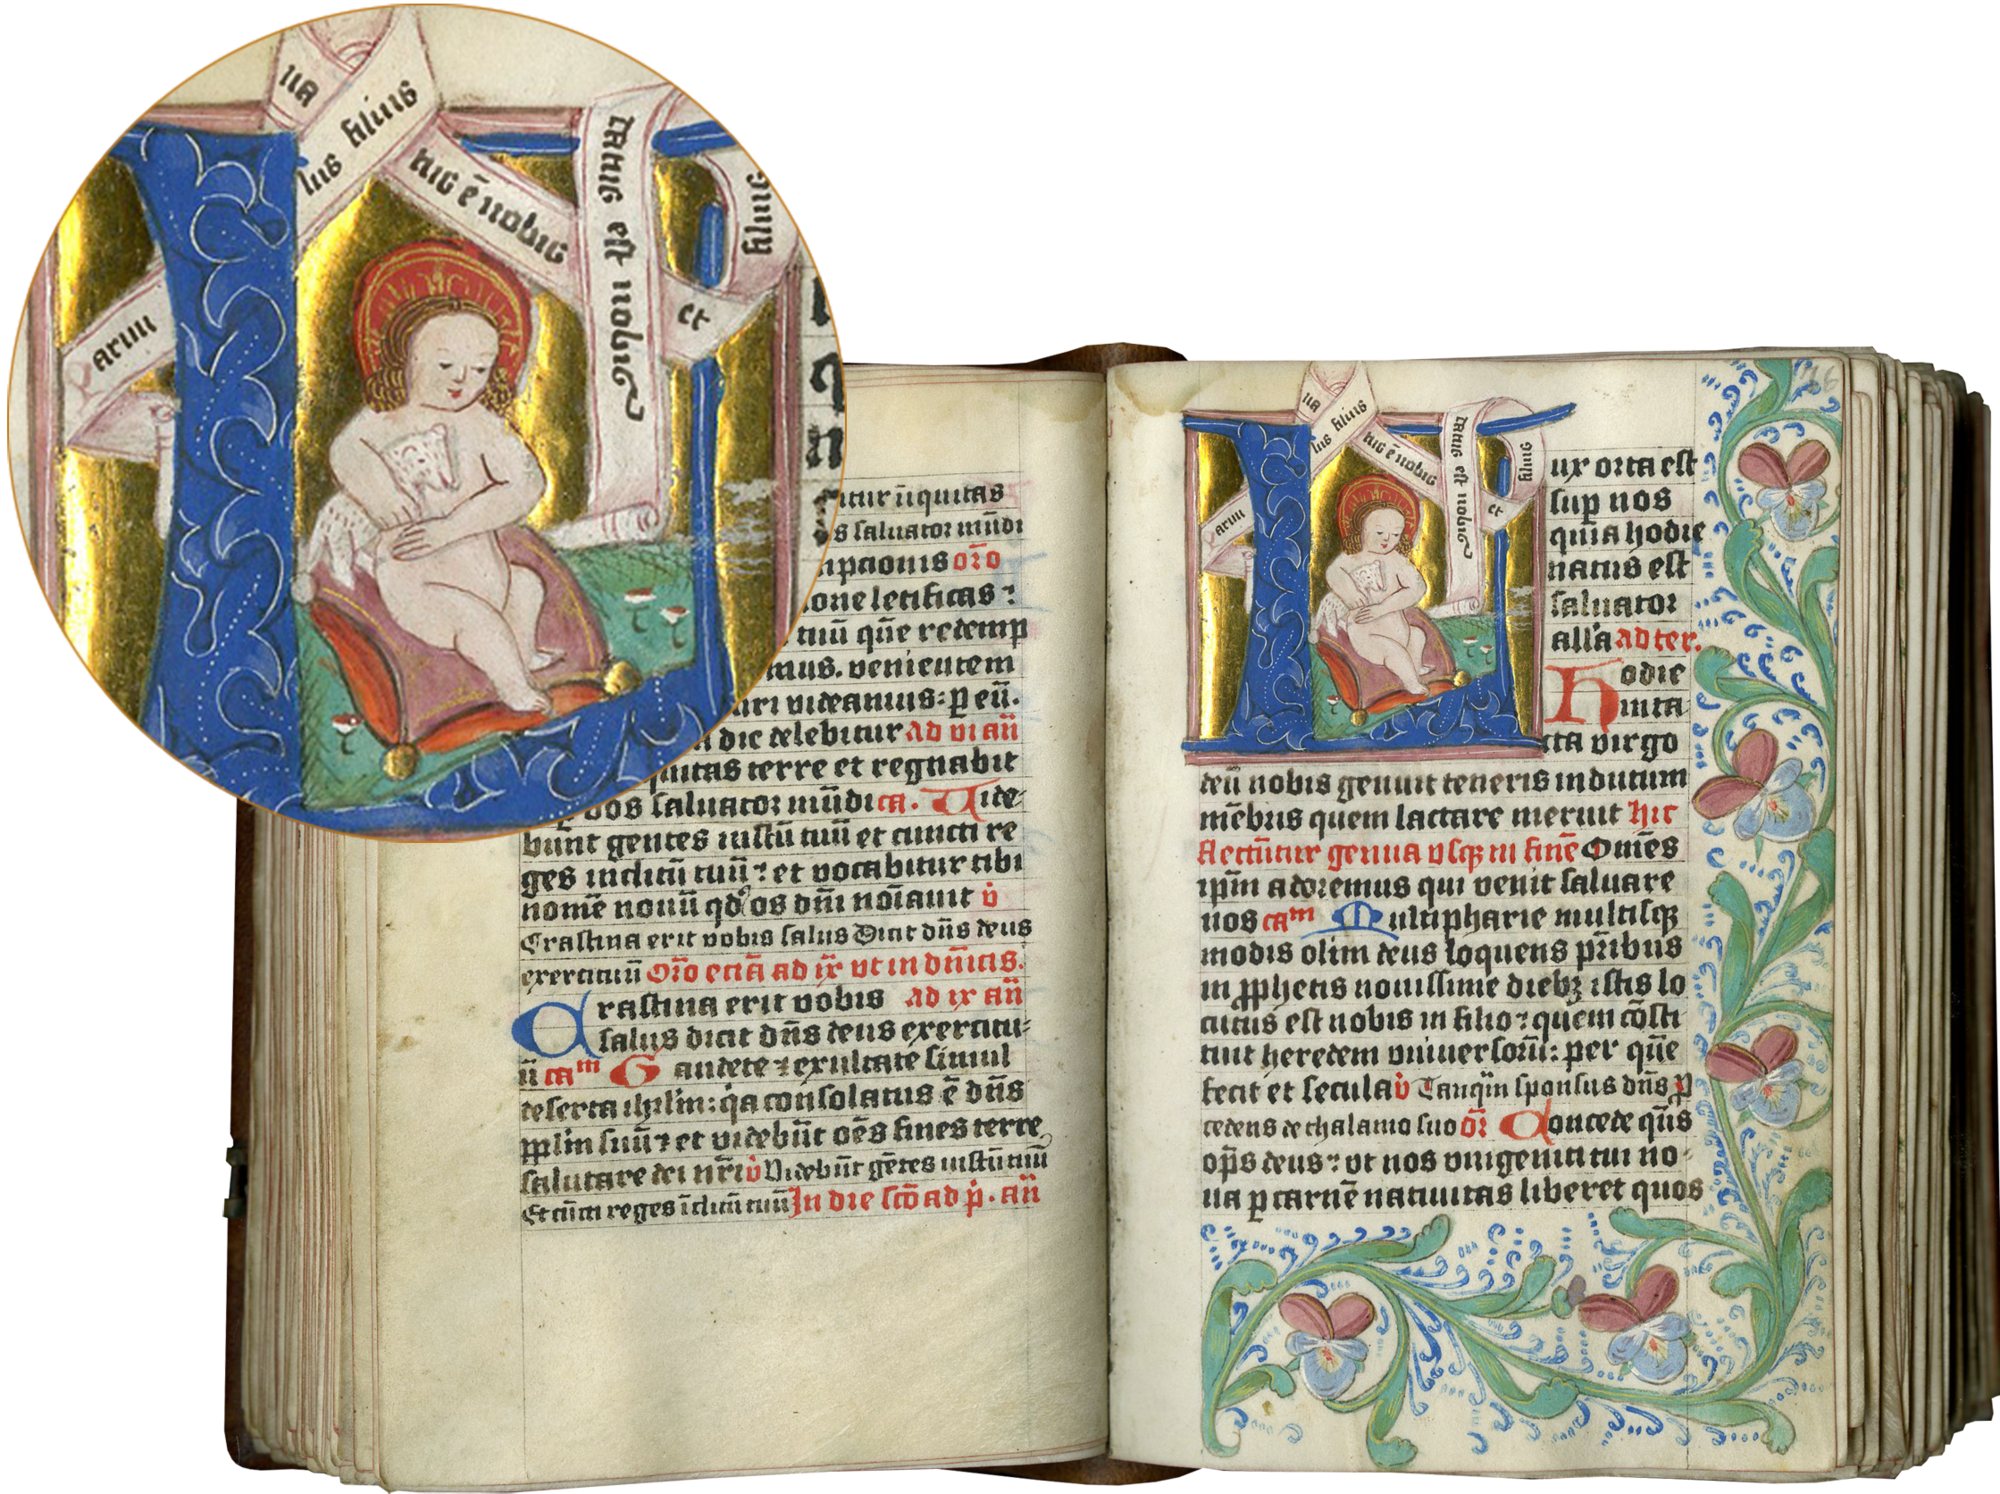 ua
lus filius
nic ē nobic
tatus est nobis
filius
et
aruu
itur iiquitas
s saluator mūdi
mpcionis oro
one letificas :
tuū quē redemp
mus. venientem
uri videamus: p eū.
dic celebitur ad vi an
quitas terre et regnabit
os saluator mūdi ca. Vide
bunt gentes iustū tuū et cuncti re
ges inclitū tuū : et vocabitur tibi
nomē nouū qd os dm̄ noīauit v̇
Crastina erit vobis salus Dicit dn̄s deus
exercituū Oro ecia ad ix ut in dm̄cis.
Crastina erit vobis ad ix an
salus dicit dn̄s deus exercitu
ū cam Gaudete ⁊ exultate simul
deserta ihrlm: qa consolatus ē dn̄s
pplm suū ⁊ et videbūt oēs fines terre
salutare dei nr̄i v̇ Videbūt gētes iustū tuū
Et cūcti reges īclitū tuū In die scō ad p̄. an
Lux orta est
sup nos
quia hodie
natus est
saluator
alla ad ter.
Hodie
inta
cta virgo
deū nobis genuit teneris indutum
mēbris quem lactare meruit hic
flectūtur genua vsqz in finē Omēs
ipm adoremus qui venit saluare
nos cam Multipharie multisqz
modis olim deus loquens pribus
in pphetis nouissime diebz istis lo
cutus est nobis in filio : quem cōsti
tuit heredem vniuersorū: per quē
fecit et secula v̇ Tanqm sponsus dn̄s p
cedens de thalamo suo or Concede qs
ops deus : vt nos vnigeniti tui no
ua p carnē natiuitas liberet quos